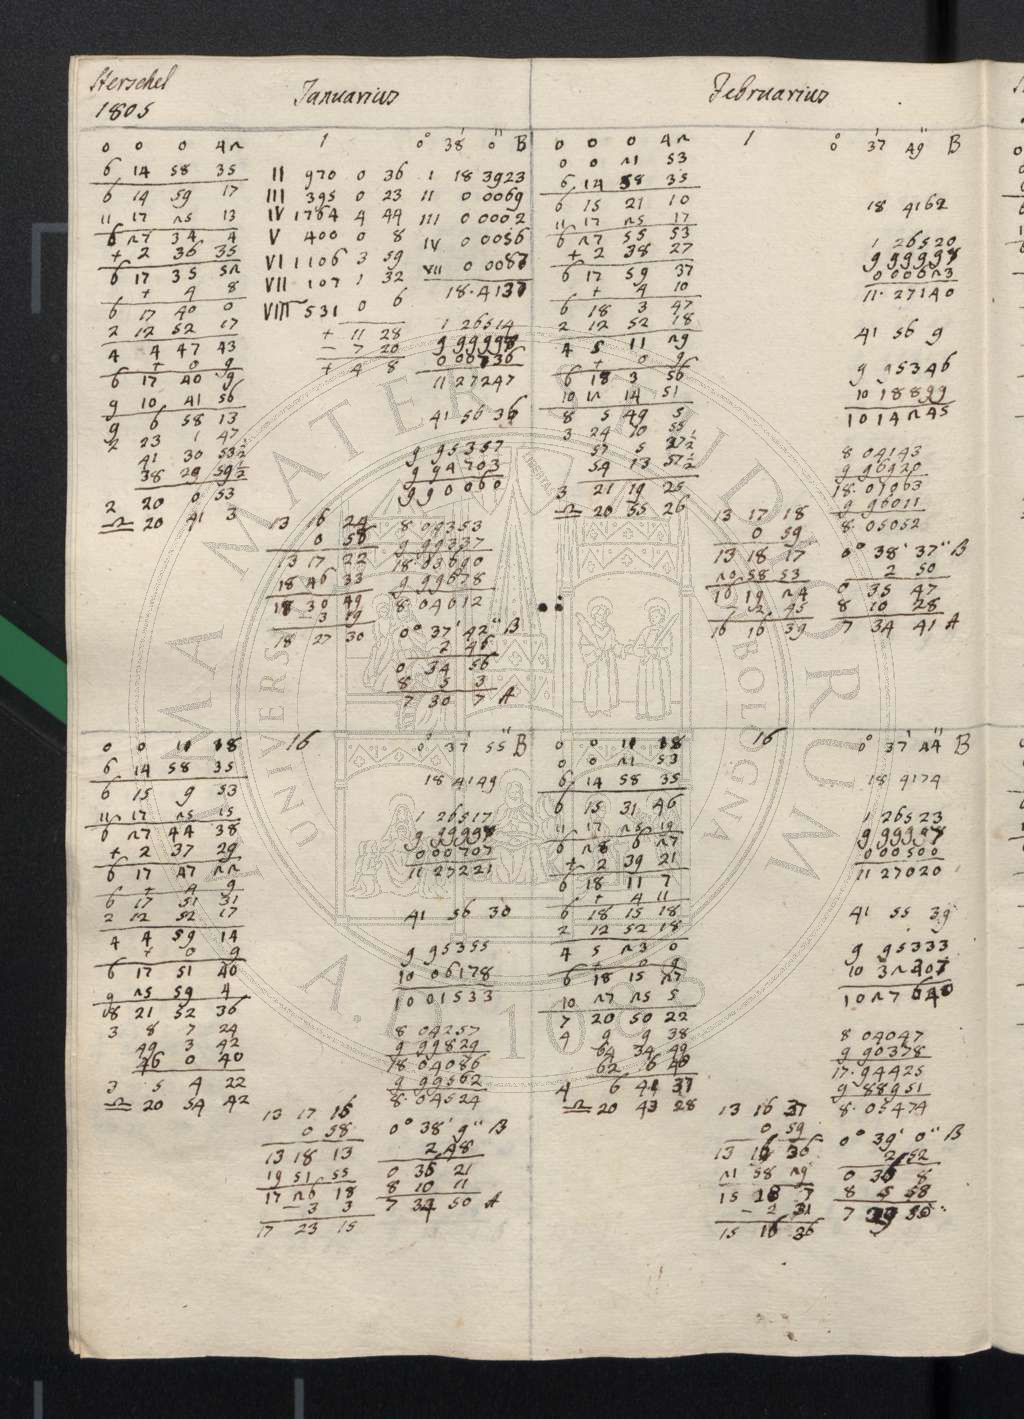 Herschel
1805
Januarius
Februarius
1
0° 38' 0" B
0 0 0 42
6 14 58 35
6 14 59 17
11 17 25 13
6 27 34 4
+ 2 36 35
6 17 35 52
+ 4 8
6 17 40 0
2 12 52 17
4 4 47 43
+ 0 9
6 17 40 9
9 10 41 56
9 6 58 13
2 23 1 47
41 30 53½
38 29 59½
2 20 0 53
♎ 20 41 3
II 970 0 36
III 395 0 23
IV 1764 4 44
V 400 0 8
VI 1106 3 59
VII 107 1 32
VIII 531 0 6
+ 11 28
- 7 20
+ 4 8
I 18 3923
II 0 0069
III 0 0002
IV 0 0056
VII 0 0087
18.4137
1 26514
999998
000736
11 27247
41 56 36
9 95357
9 94703
9 90060
13 16 24
0 58
13 17 22
18 46 33
18 30 49
- 3 19
18 27 30
8 04353
9 99337
18.03690
9 99678
8 04012
0° 37' 42" B
2 46
0 34 56
8 5 3
7 30 7 A
1
0° 37' 49" B
0 0 0 42
0 0 21 53
6 14 58 35
6 15 21 10
11 17 25 17
6 27 55 53
+ 2 38 27
6 17 59 37
+ 4 10
6 18 3 47
2 12 52 18
4 5 11 29
+ 0 9
6 18 3 56
10 12 14 51
8 5 49 5
3 24 10 55
57 5 27½
54 13 57½
3 21 19 25
♎ 20 35 26
18 4162
1 26520
999997
000623
11.27140
41 56 9
9 95346
10 18899
10 14245
8 04143
9 96920
18.01063
9 96011
8 05052
13 17 18
0 59
13 18 17
20 58 53
10 19 24
- 2 45
16 16 39
0° 38' 37" B
2 50
0 35 47
8 10 28
7 34 41 A
16
0° 37' 55" B
0 0 11 18
6 14 58 35
6 15 9 53
11 17 25 15
6 27 44 38
+ 2 37 29
6 17 47 22
+ 4 9
6 17 51 31
2 12 52 17
4 4 59 14
+ 0 9
6 17 51 40
9 25 59 4
8 21 52 36
3 8 7 24
49 3 42
46 0 40
3 5 4 22
♎ 20 54 42
18 4149
1 26517
999997
000707
11 27221
41 56 30
9 95355
10 06178
10 01533
8 04257
9 99829
18 04086
9 99562
8.04524
13 17 15
0 58
13 18 13
19 51 55
17 26 18
- 3 3
17 23 15
0° 38' 9" B
2 48
0 35 21
8 10 11
7 34 50 A
16
0° 37' 44" B
0 0 11 18
0 0 21 53
6 14 58 35
6 15 31 46
11 17 25 19
6 28 6 27
+ 2 39 21
6 18 11 7
+ 4 11
6 18 15 18
2 12 52 18
4 5 23 0
+ 0 9
6 18 15 27
10 27 25 5
7 20 50 22
4 9 9 38
64 34 49
62 6 48
4 6 41 37
♎ 20 43 28
18 4174
1 26523
999997
000500
11 27020
41 55 39
9 95333
10 32307
10 27640
8 04047
9 90378
17.94425
9 88951
8.05474
13 16 37
0 59
13 16 36
21 58 29
15 18 7
- 2 31
15 16 36
0° 39' 0" B
2 52
0 36 8
8 5 58
7 29 50